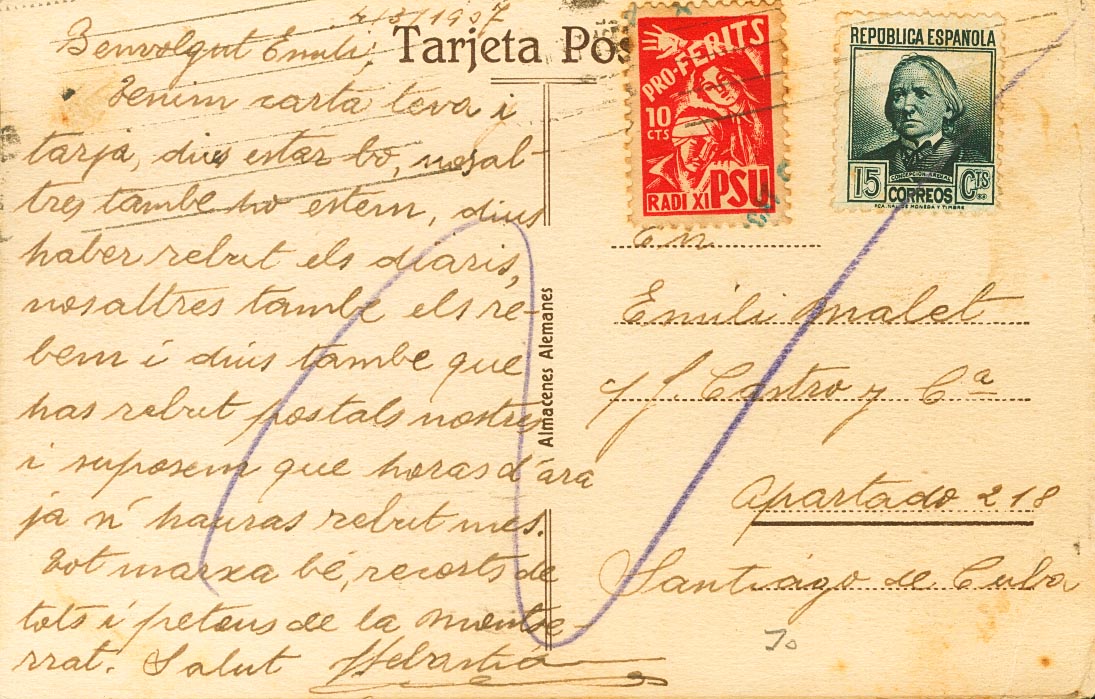 4/3/1937
Benvolgut Emili;
Tarjeta Pos
Tenim carta teva i
tarja, dius estar bo, nosal-
tres tambe ho estem, dius
haber rebut els diaris,
nosaltres tambe els re-
bem i dius tambe que
has rebut postals nostres
i suposem que horas d'ara
ja n' hauras rebut mes.
Tot marxa bé, recorts de
tots i petons de la Montse-
rrat. Salut Sebastià
Almacenes Alemanes
PRO-FERITS
10
CTS
RADI XI PSU
REPUBLICA ESPAÑOLA
CONCEPCION ARENAL
15 CORREOS CTS
FCA. NAL. DE MONEDA Y TIMBRE
En
Emili Malet
c/ J. Castro y Cª
Apartado 218
Santiago de Cuba